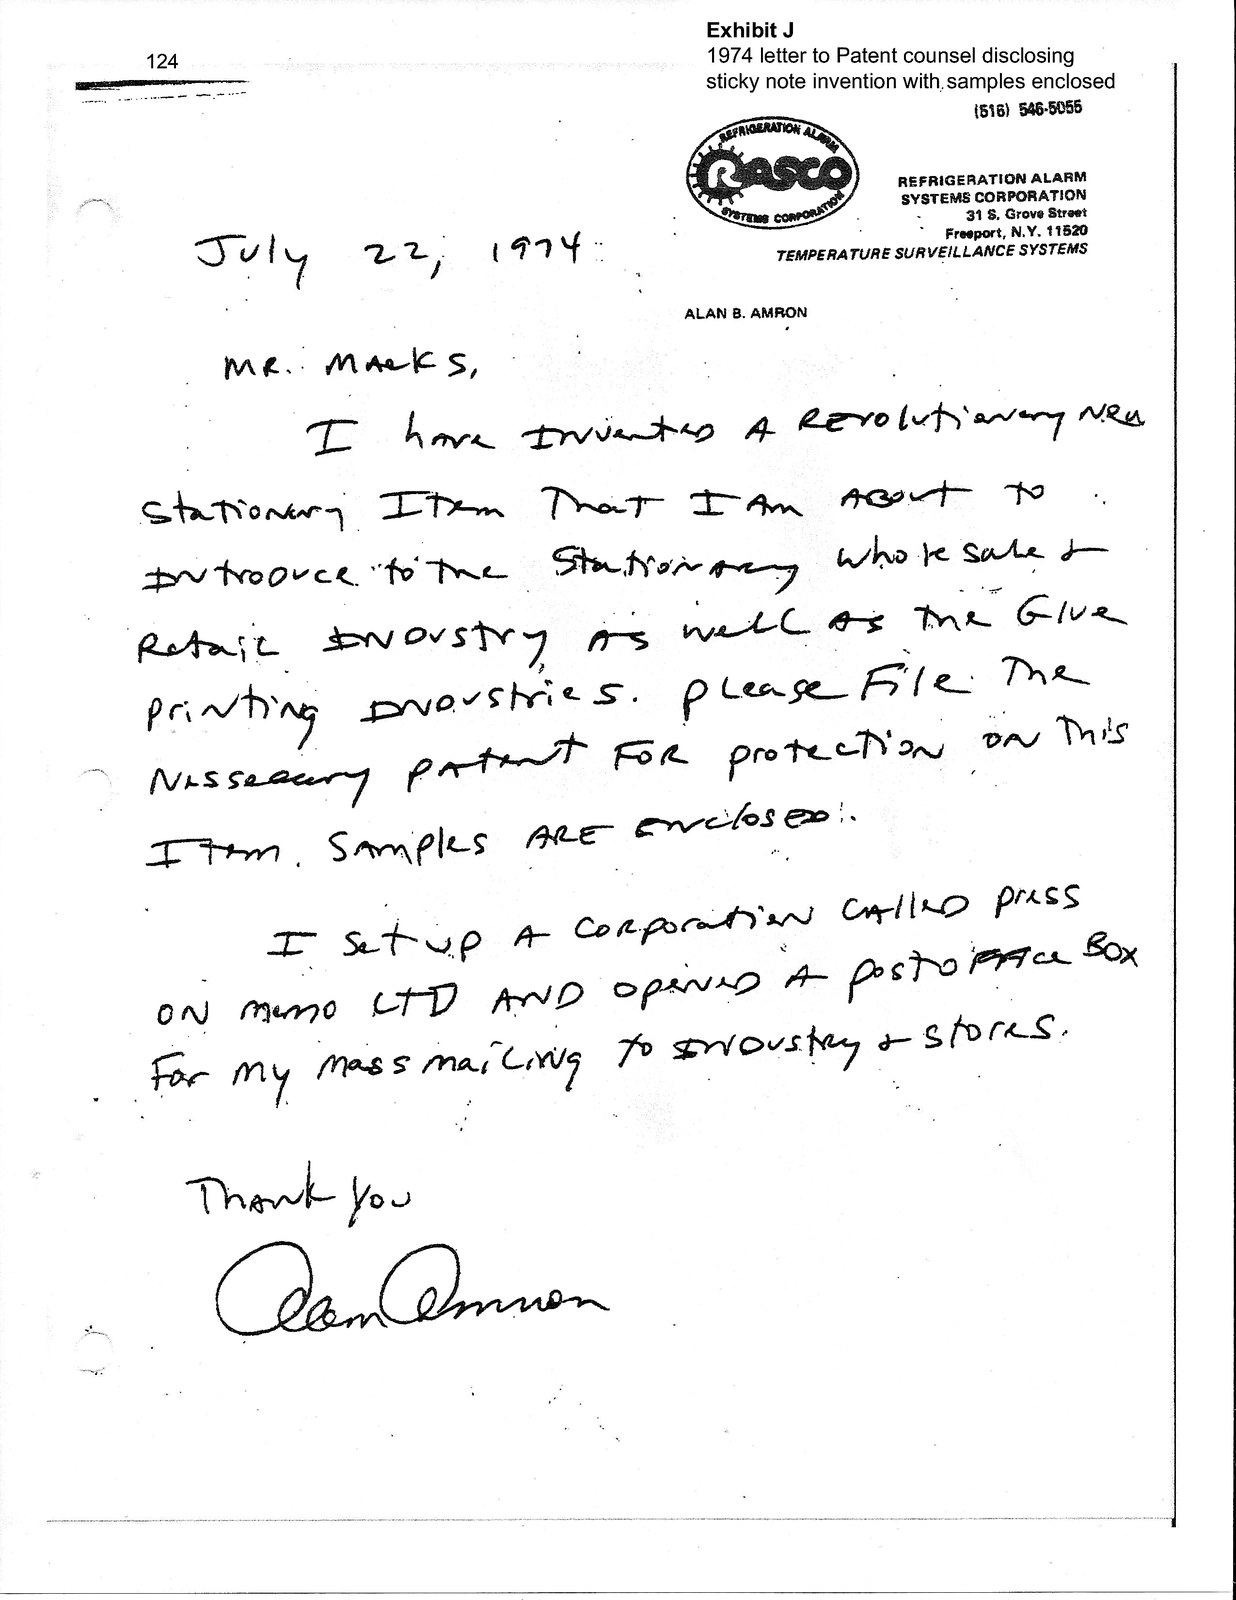 124
Exhibit J
1974 letter to Patent counsel disclosing
sticky note invention with samples enclosed
(516) 546-5055
REFRIGERATION ALARM
RASCO
SYSTEMS CORPORATION
REFRIGERATION ALARM
SYSTEMS CORPORATION
31 S. Grove Street
Freeport, N.Y. 11520
TEMPERATURE SURVEILLANCE SYSTEMS
ALAN B. AMRON
July 22, 1974
MR. MARKS,
I have INvented A REvolutionary New
Stationary Item That I Am About to
INtroduce to the Stationary wholesale &
Retail INDustry, As well As the Glue
printing INDustries. please File The
Nessecary patent FOR protection ON This
Item. Samples ARE enclosed.
I set up A CORporation CAlled press
ON memo LTD AND opened A post office Box
For my mass mailing to INDustry & stores.
Thank you
Alan Amron